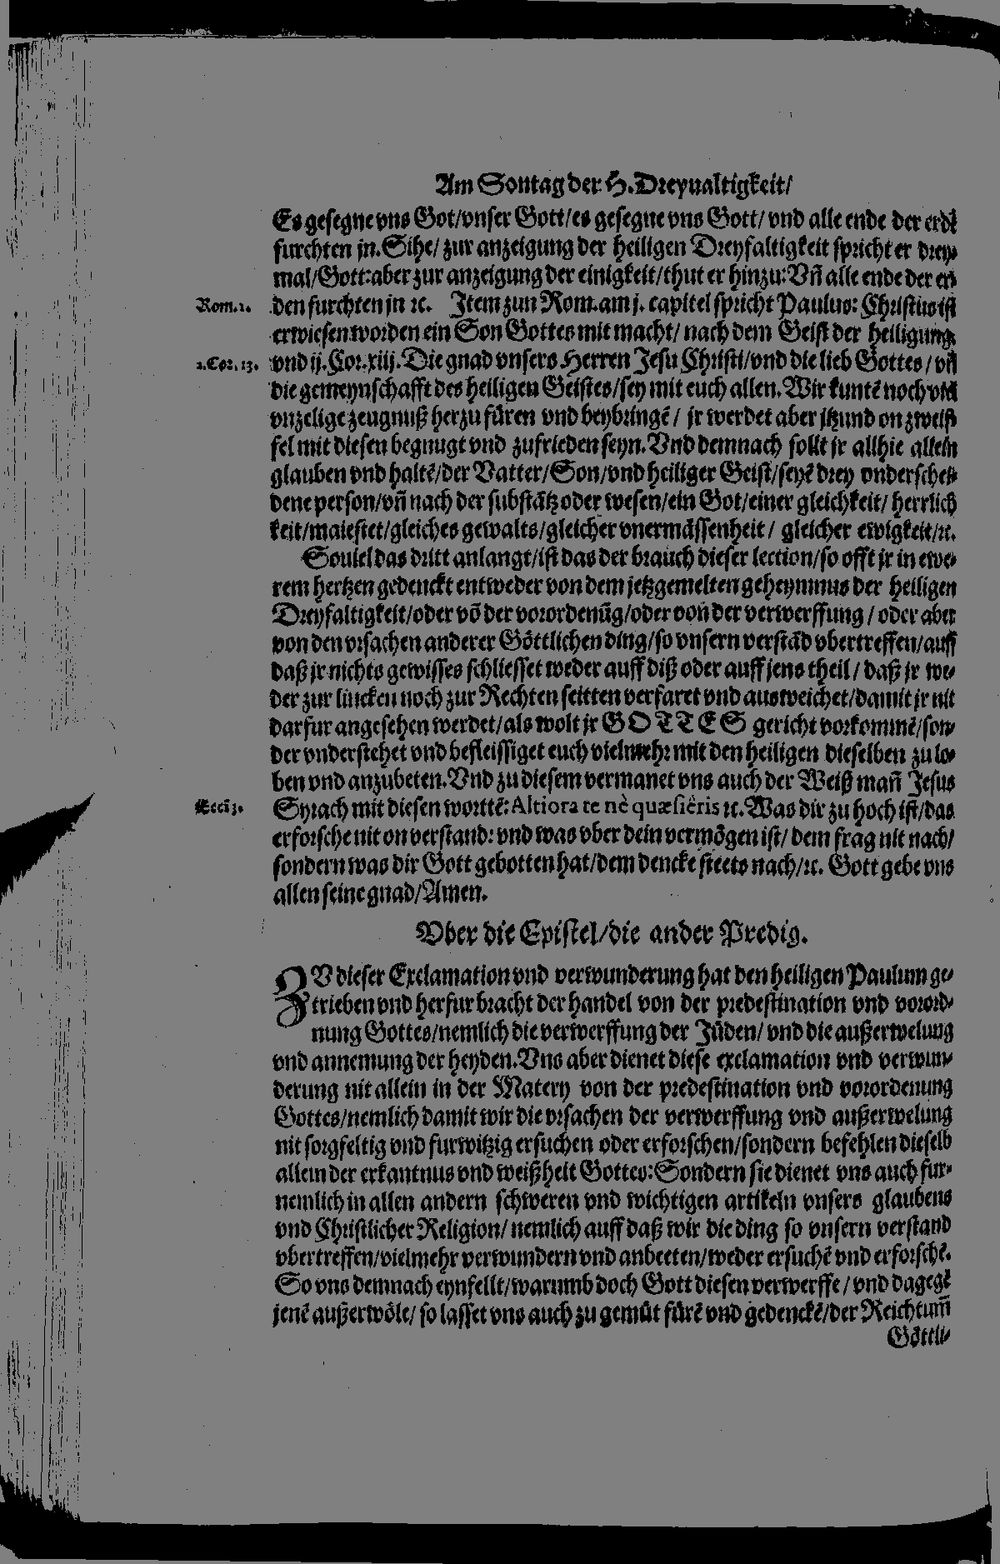 Am Sontag der H. Dreyualtigkeit/
Es gesegne vns Got/vnser Gott/es gesegne vns Gott/ vnd alle ende der erdē
furchten jn. Sihe/ zur anzeigung der heiligen Dreyfaltigkeit spricht er drey-
mal/Gott: aber zur anzeigung der einigkeit/thut er hinzu: Vñ alle ende der er-
Rom.1.
den furchten jn ꝛc. Item zun Rom. am j. capitel spricht Paulus: Christus ist
erwiesen worden ein Son Gottes mit macht/ nach dem Geist der heiligung
2.Cor.13.
vnd ij. Cor. xiij. Die gnad vnsers Herren Jesu Christi/vnd die lieb Gottes/ vñ
die gemeynschafft des heiligen Geistes/sey mit euch allen. Wir kuntē noch vil
vnzelige zeugnuß herzu füren vnd beybringē/ jr werdet aber jtzund on zweif-
fel mit diesen begnugt vnd zufrieden seyn. Vnd demnach sollt jr allhie allein
glauben vnd haltē/der Vatter/Son/vnd heiliger Geist/seyē drey vnderschei-
dene person/vñ nach der substātz oder wesen/ein Got/einer gleichkeit/ herrlich
keit/maiestet/gleiches gewalts/gleicher vnermässenheit/ gleicher ewigkeit/ꝛc.
Souiel das dritt anlangt/ist das der brauch dieser lection/so offt jr in ewe-
rem hertzen gedenckt entweder von dem jetzgemelten geheymnus der heiligen
Dreyfaltigkeit/oder vō der vorordenūg/oder von der verwerffung/ oder aber
von den vrsachen anderer Göttlichen ding/so vnsern verstād vbertreffen/auff
daß jr nichts gewisses schliesset weder auff diß oder auff jens theil/ daß jr we-
der zur lincken noch zur Rechten seitten verfaret vnd ausweichet/damit jr nit
darfur angesehen werdet/als wolt jr GOTTES gericht vorkommē/son-
der vnderstehet vnd befleissiget euch vielmehr mit den heiligen dieselben zu lo-
ben vnd anzubeten. Vnd zu diesem vermanet vns auch der Weiß mañ Jesus
Eccl̄i 3.
Syrach mit diesen wortē: Altiora te nè quæsiêris ꝛc. Was dir zu hoch ist/das
erforsche nit on verstand: vnd was vber dein vermögen ist/ dem frag nit nach/
sondern was dir Gott gebotten hat/dem dencke steets nach/ꝛc. Gott gebe vns
allen seine gnad/Amen.
Vber die Epistel/die ander Predig.
ZV dieser Exclamation vnd verwunderung hat den heiligen Paulum ge-
trieben vnd herfur bracht der handel von der predestination vnd vorord-
nung Gottes/nemlich die verwerffung der Jüden/ vnd die außerwelung
vnd annemung der heyden. Vns aber dienet diese exclamation vnd verwun-
derung nit allein in der Matery von der predestination vnd vorordenung
Gottes/nemlich damit wir die vrsachen der verwerffung vnd außerwelung
nit sorgfeltig vnd furwitzig ersuchen oder erforschen/sondern befehlen dieselb
allein der erkantnus vnd weißheit Gottes: Sondern sie dienet vns auch fur-
nemlich in allen andern schweren vnd wichtigen artikeln vnsers glaubens
vnd Christlicher Religion/ nemlich auff daß wir die ding so vnsern verstand
vbertreffen/vielmehr verwundern vnd anbeeten/weder ersuchē vnd erforschē.
So vns demnach eynfellt/warumb doch Gott diesen verwerffe/ vnd dagegē
jenē außerwöle/ so lasset vns auch zu gemüt fürē vnd gedenckē/der Reichtum̄
Göttli-